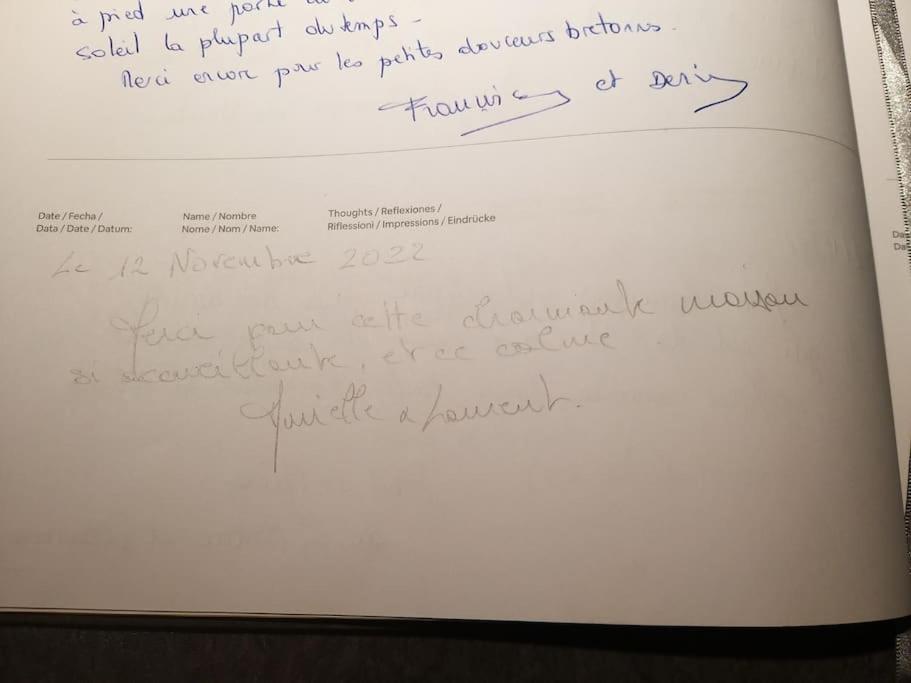 à pied une
soleil la plupart du temps -
Merci encore pour les petites douceurs bretonnes.
et
Date / Fecha /
Data / Date / Datum:
Name / Nombre
Nome / Nom / Name:
Thoughts / Reflexiones /
Riflessioni / Impressions / Eindrücke
Le 12 Novembre 2022
Merci pour cette charmante maison
si accueillante, et ce calme.
Laurent.
Da
Da